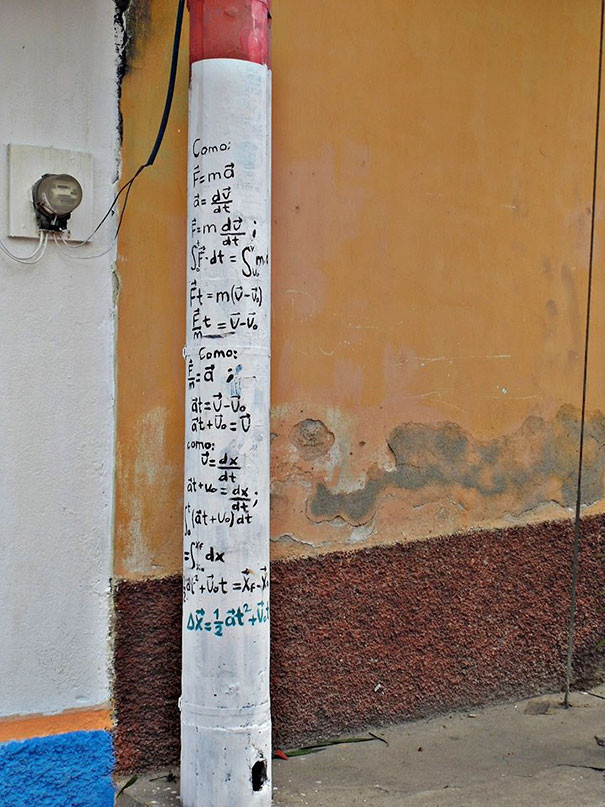 Como:
F⃗=ma⃗
a⃗=dv⃗/dt
F⃗=m dv⃗/dt ;
∫₀ᵗF⃗·dt = ∫ᵥ₀ᵛ m
F⃗t=m(v⃗-v⃗₀)
F⃗/m t = v⃗-v⃗₀
Como:
F⃗/m=a⃗ ;
a⃗t=v⃗-v⃗₀
a⃗t+v⃗₀=v⃗
como:
v⃗=dx/dt
a⃗t+v₀=dx/dt;
∫₀ᵗ(a⃗t+v₀)dt
=∫ₓ₀ˣᶠdx
½at²+v⃗₀t=x⃗F-x⃗₀
Δx⃗=½a⃗t²+v⃗₀t